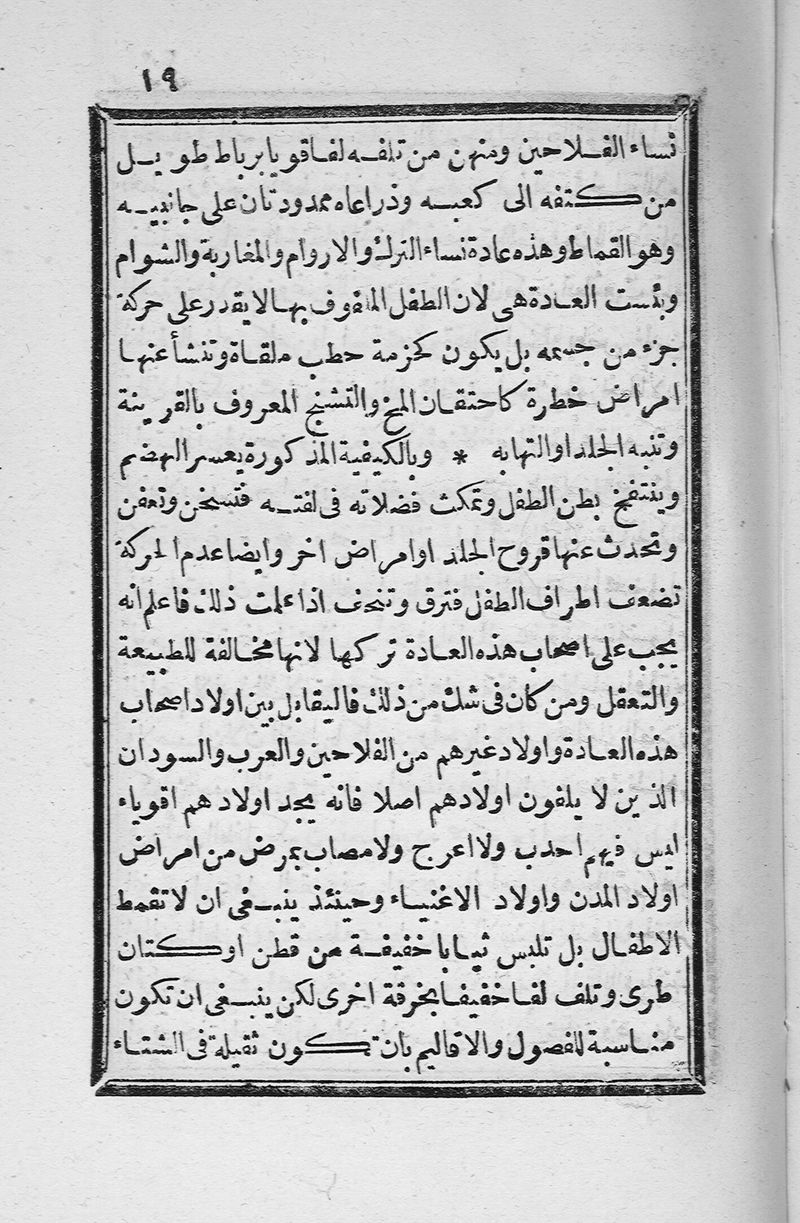 ١٩
نساء الفلاحين ومنهن من تلفه لفا قويا برباط طويل
من كتفه الى كعبه وذراعاه ممدودتان على جانبيه
وهو القماط وهذه عادة نساء الترك والاروام والمغاربة والشوام
وبئست العادة هى لان الطفل الملفوف بها لا يقدر على حركة
جزء من جسمه بل يكون كحزمة حطب ملقاة وتنشأ عنها
امراض خطرة كاحتقان المخ والتشنج المعروف بالقرينة
وتنبه الجلد او التهابه * وبالكيفية المذكورة يعسر الهضم
وينتفخ بطن الطفل وتمكث فضلاته فى لفته فتسخن وتعفن
وتحدث عنها قروح الجلد او امراض اخر وايضا عدم الحركة
تضعف اطراف الطفل فترق وتنحف اذا علمت ذلك فاعلم انه
يجب على اصحاب هذه العادة تركها لانها مخالفة للطبيعة
والتعقل ومن كان فى شك من ذلك فاليقابل بين اولاد اصحاب
هذه العادة واولاد غيرهم من الفلاحين والعرب والسودان
الذين لا يلفون اولادهم اصلا فانه يجد اولادهم اقوياء
ليس فيهم احدب ولا اعرج ولا مصاب بمرض من امراض
اولاد المدن واولاد الاغنياء وحينئذ ينبغى ان لا تقمط
الاطفال بل تلبس ثيابا خفيفة من قطن او كتان
طرى وتلف لفا خفيفا بخرقة اخرى لكن ينبغى ان تكون
مناسبة للفصول والاقاليم بان تكون ثقيلة فى الشتاء